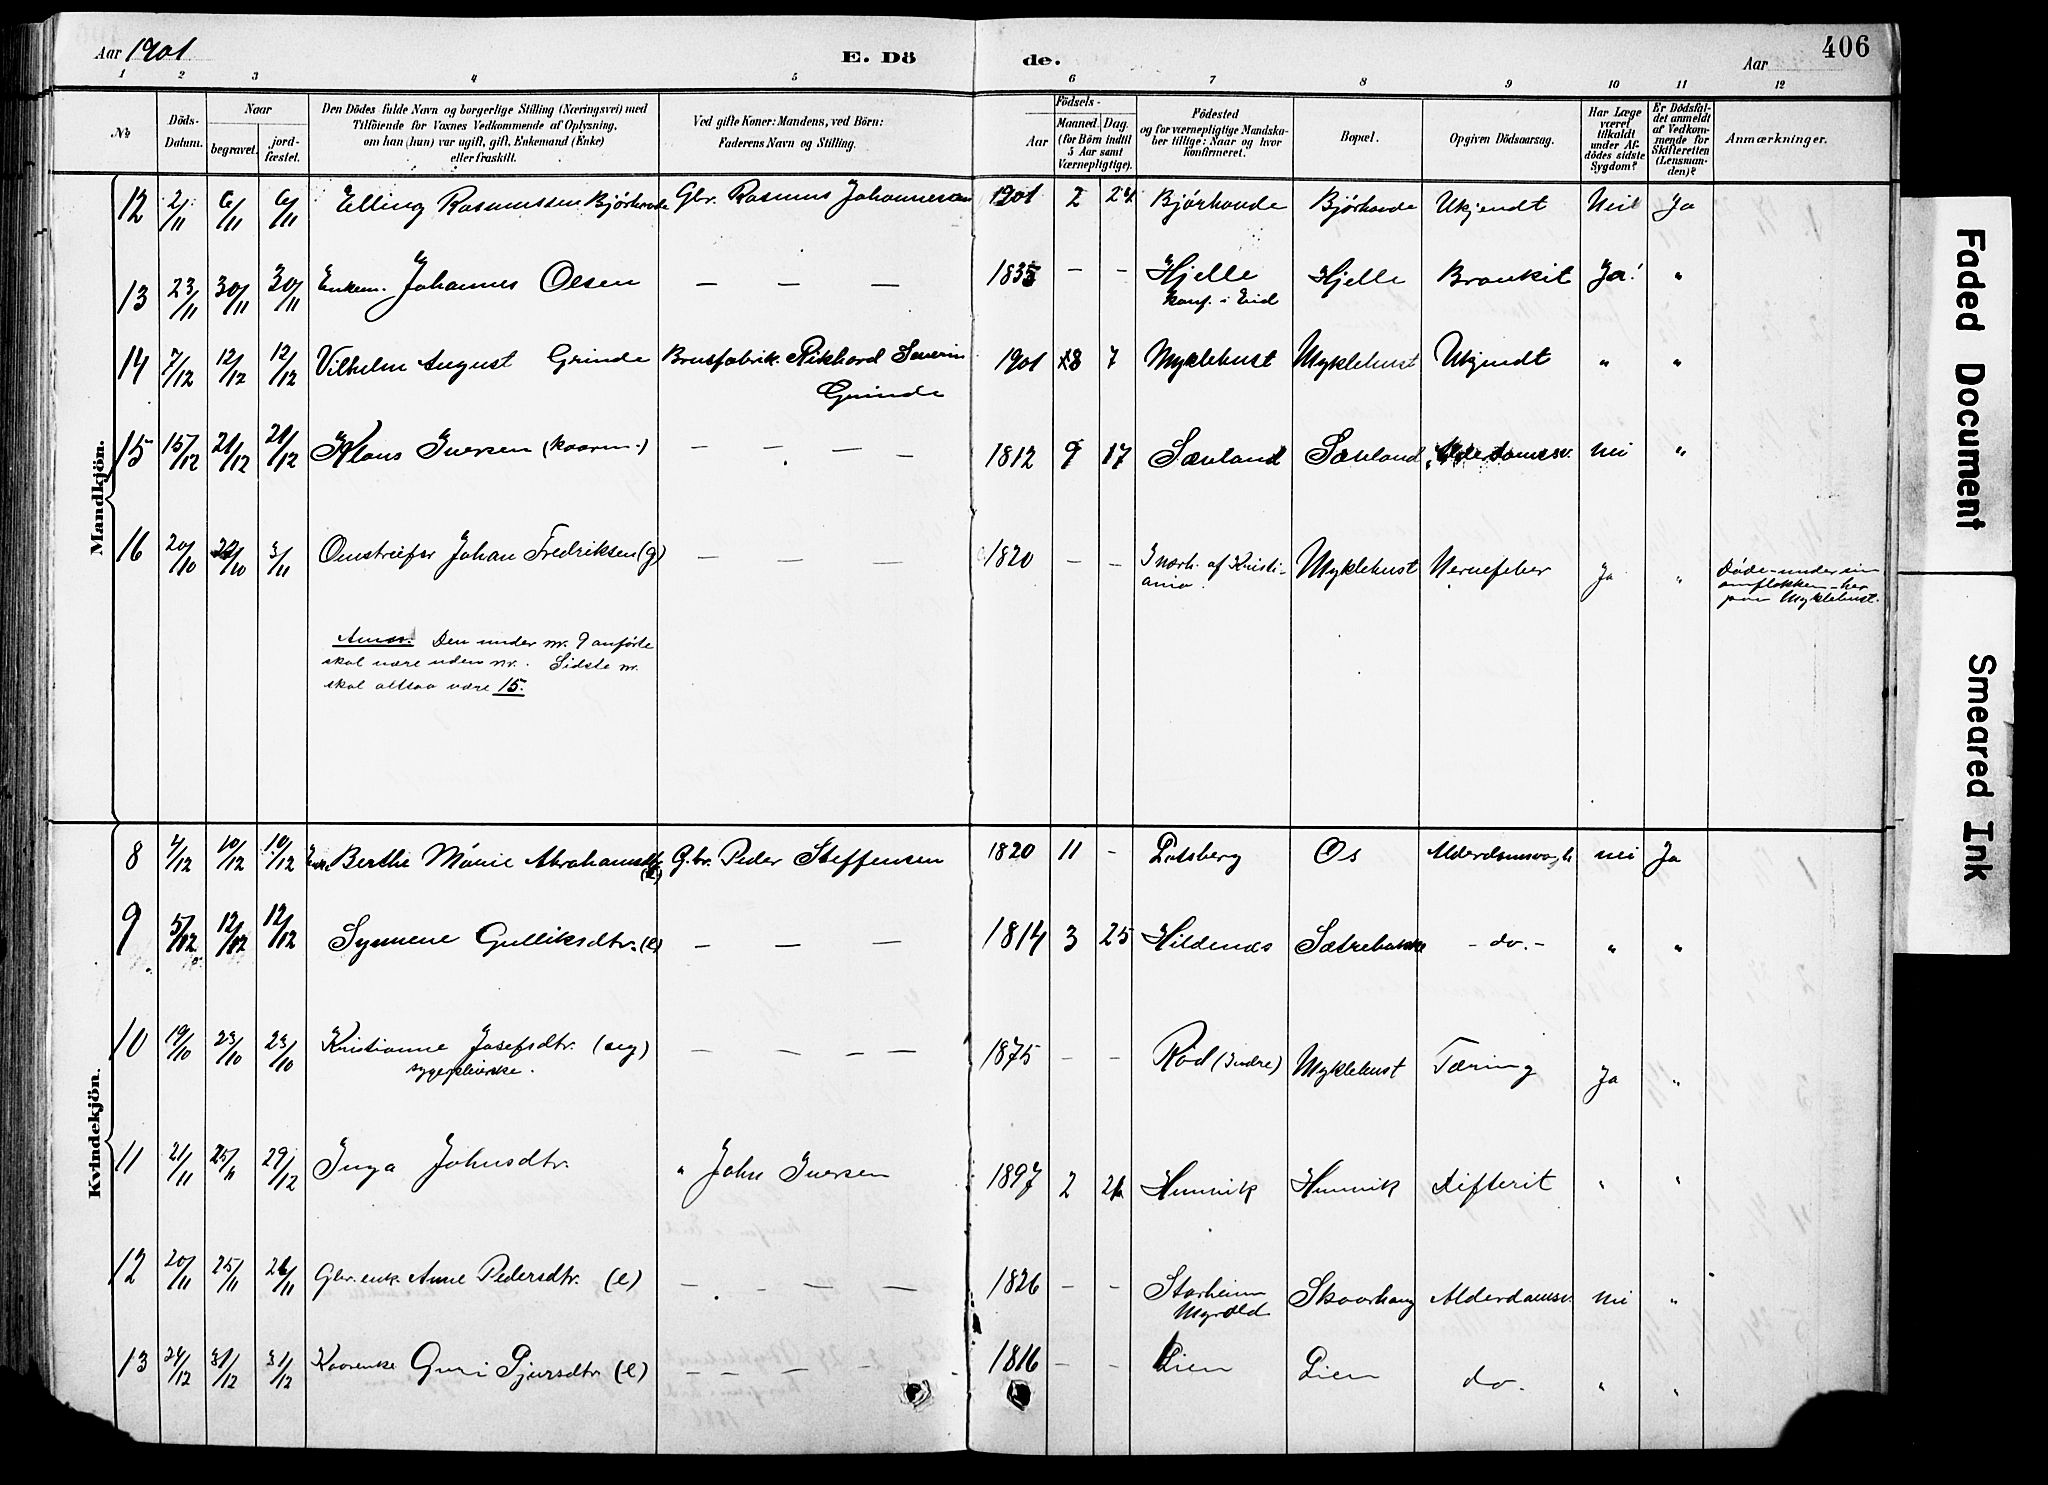 Aar 1901. E. Dö de. Aar 406
1 2 3 4 5 6 7 8 9 10 11 12
No
Döds-Datum.
Naar
begravet.
jord-fæstet.
Den Dödes fulde Navn og borgerlige Stilling (Næringsvei) med
Tilföiende for Voxnes Vedkommende af Oplysning,
om han (hun) var ugift, gift, Enkemand (Enke)
eller fraskilt.
Ved gifte Koner: Mandens, ved Börn:
Faderens Navn og Stilling.
Födsels-
Aar
Maaned. Dag.
(for Börn indtil
5 Aar samt
Værnepligtige).
Födested
og for værnepligtige Mandska-
ber tillige: Naar og hvor
konfirmeret.
Bopæl.
Opgiven Dödsaarsag.
Har Læge
været
tilkaldt
under Af-
dödes sidste
Sygdom?
Er Dödsfal-
det anmeldt
af Vedkom-
mende for
Skifteretten
(Lensman-
den)?
Anmærkninger.
Mandkjön.
12 2/11 6/11 6/11 Elling Rasmussen Bjørhovde Gbr. Rasmus Johannessen 1901 2 24 Bjørhovde Bjørhovde Ukjendt Nei Ja
13 23/11 30/11 30/11 Enkem. Johannes Olsen — — — 1835 - - Hjelle Hjelle Bronkit Ja! "
konf. i Eid
14 7/12 12/12 12/12 Vilhelm August Grinde Brusfabrik. Rikhard Severin 1901 8 7 Myklebust Myklebust Ukjendt " "
Grinde
15 15/12 21/12 21/12 Klaus Iversen (kaarm.) — — — 1812 9 17 Sævland Sævland Alderdomssv. nei "
16 20/10 22/10 3/11 Omstreifer Johan Fredriksen (g) — — — 1820 - - I nærh. af Kristi- Myklebust Nervefeber Ja "
ania.
Døde under sin
omflakken her
paa Myklebust.
Anm. Den under nr. 9 anførte
skal være uden nr. Sidste nr.
skal altsaa være 15.
Kvindekjön.
8 4/12 10/12 10/12 Berthe Marie Abrahamsdtr (e) Gbr. Peder Steffensen 1820 11 - Lotsberg Os nei Ja
9 5/12 12/12 12/12 Synnene Gulliksdtr. (e) — — — 1814 3 25 Hildenæs - do. - " "
10 19/10 23/10 23/10 Kristianne Josefsdtr. (ug) — — — — 1875 - - Rød (Indre) Myklebust Tæring Ja "
sygepleierske.
11 21/11 25/11 29/12 Inga Johnsdtr. " John Iversen 1897 2 Hunvik Hunvik Difterit " "
12 20/11 25/11 26/11 Gbr. enk. Anne Pedersdtr. (e) — — — 1826 - - Starheim Skaarhaug Alderdomssv. nei "
Myrold
13 24/12 31/12 31/12 Kaarenke Guri Sjursdtr (e) — — — — 1816 - - Lien Lien do. " "
Faded Document
Smeared Ink